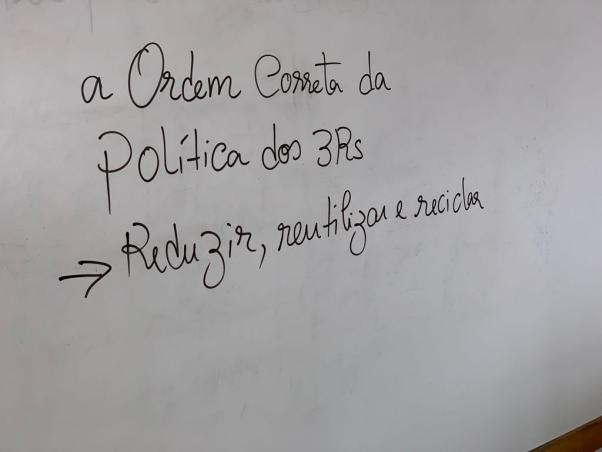 a Ordem Correta da
Política dos 3Rs
→ Reduzir, reutilizar e reciclar